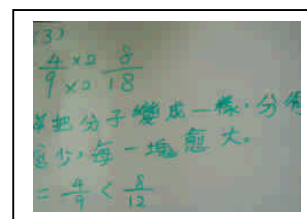 (3)
4 ×2 8
9 ×2 18
把分子變成一樣，分得
愈少，每一塊愈大。
= 4/9 < 8/12